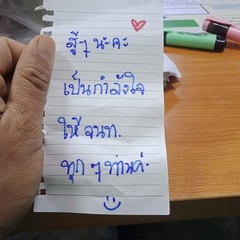 สู้ๆ นะคะ
เป็นกำลังใจ
ให้ จนท.
ทุก ๆ ท่านค่ะ